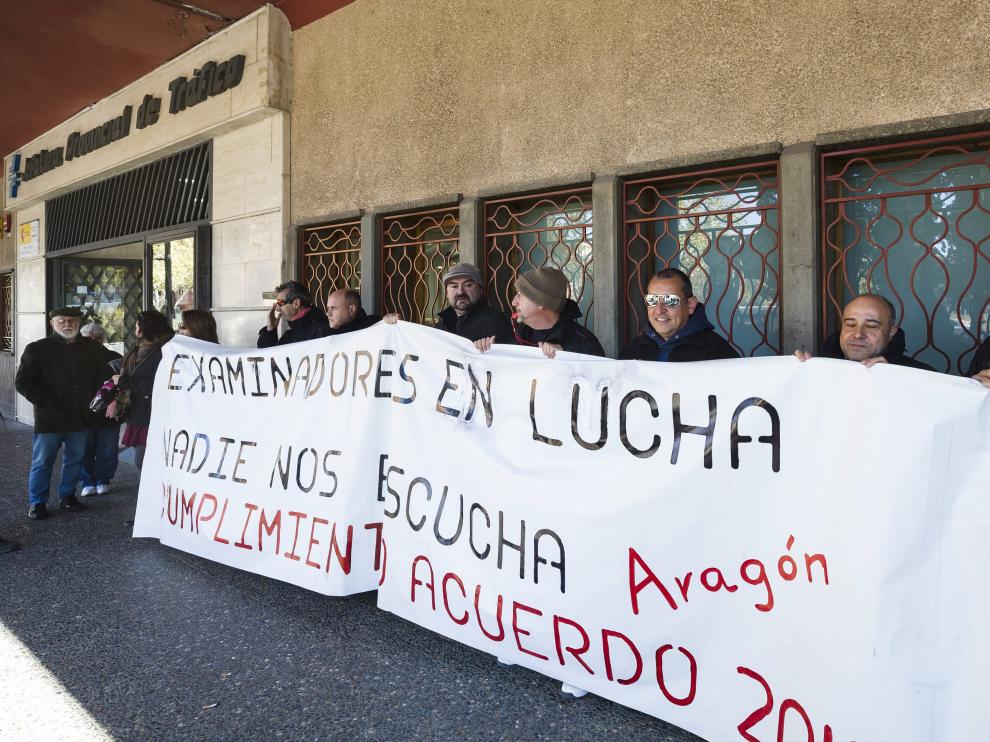 Jefatura Provincial de Tráfico
EXAMINADORES EN LUCHA
NADIE NOS ESCUCHA Aragón
CUMPLIMIENTO ACUERDO